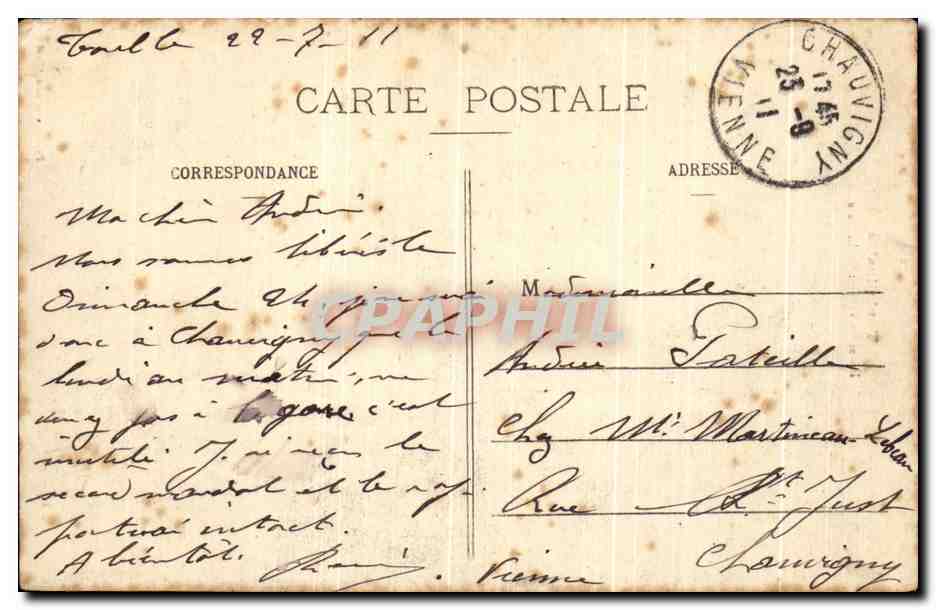 22-7-11
CARTE POSTALE
CHAUVIGNY
17 45
23 -9
11
VIENNE
CORRESPONDANCE
ADRESSE
Ma chère Andrée.
Nous sommes libérés le
Dimanche 24 je serai
donc à Chauvigny que le
lundi au matin, ne
venez pas à la gare, c'est
inutile. J'ai reçu le
second mandat et le
intact.
A bientôt. René
Mademoiselle
Andrée Pateille
Chez Mr Martineau-Lebeau
Rue St Just
Chauvigny
Vienne
CPAPHIL